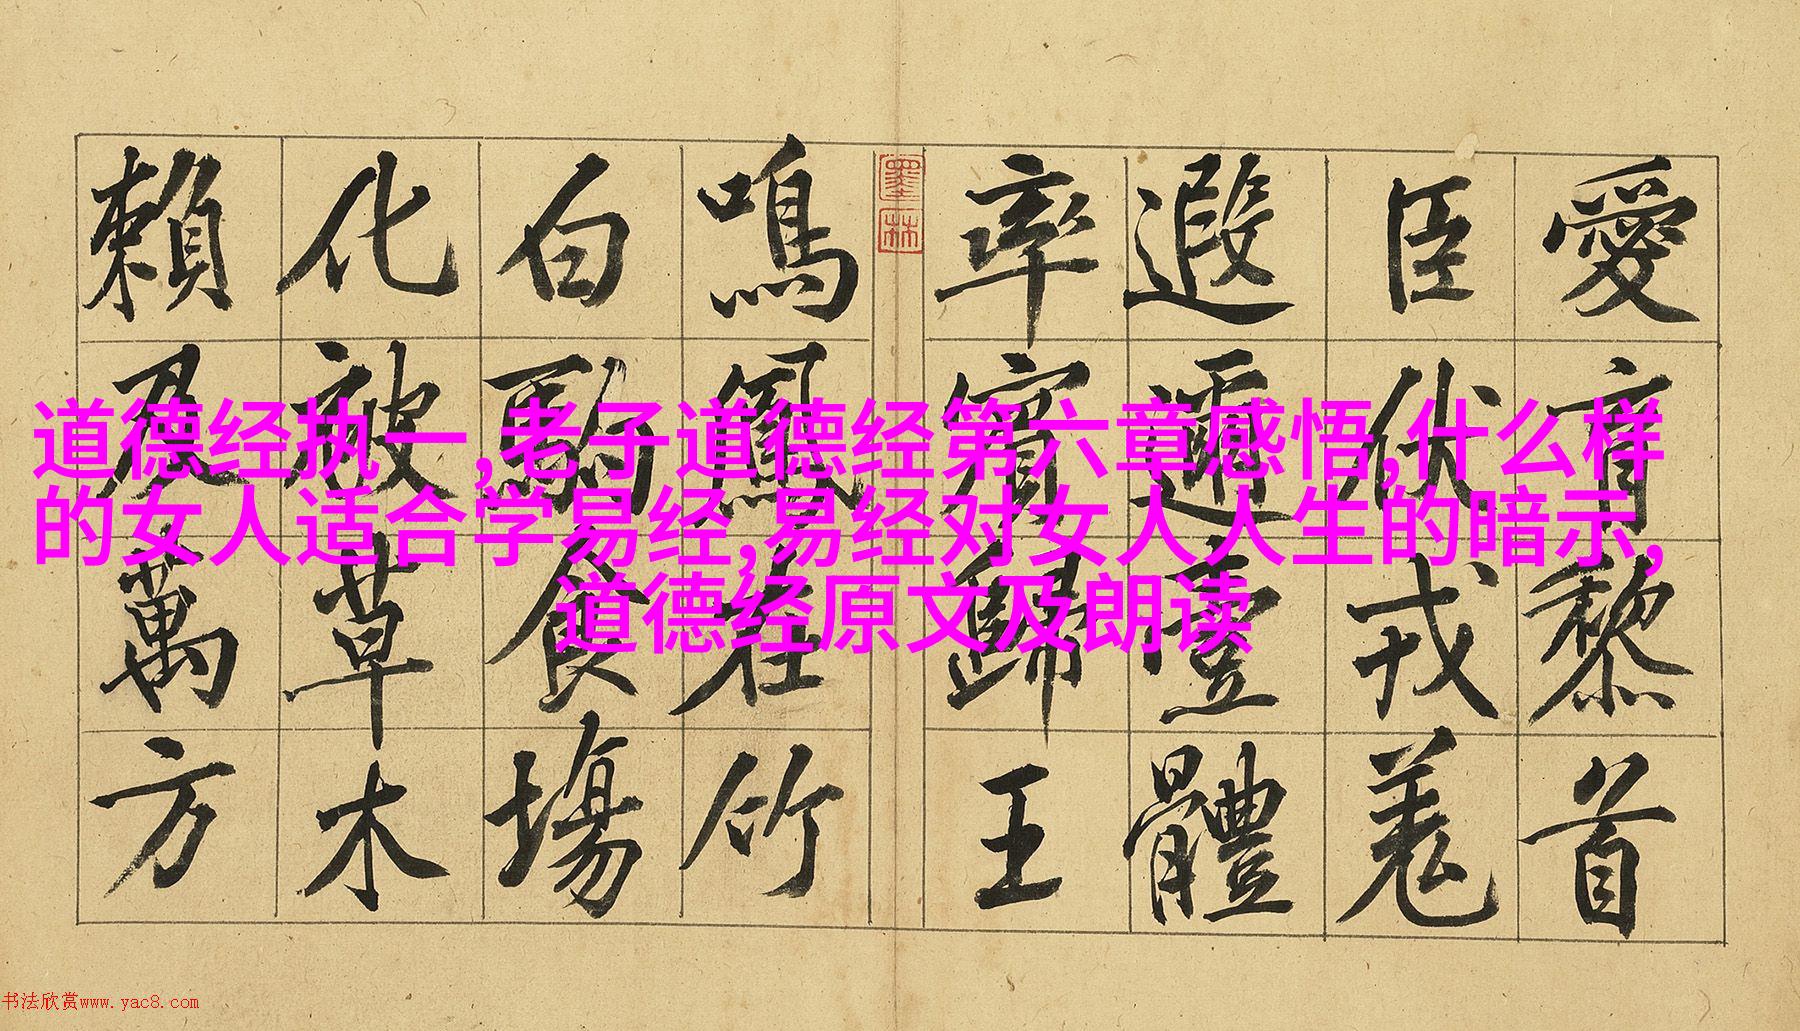 愛育黎首
臣伏戎羌
遐邇壹體
率賓歸王
鳴鳳在竹
白駒食場
化被草木
賴及萬方
墨林
道德经执一,老子道德经第六章感悟,什么样
的女人适合学易经,易经对女人人生的暗示,
道德经原文及朗读
书法欣赏www.yac8.com